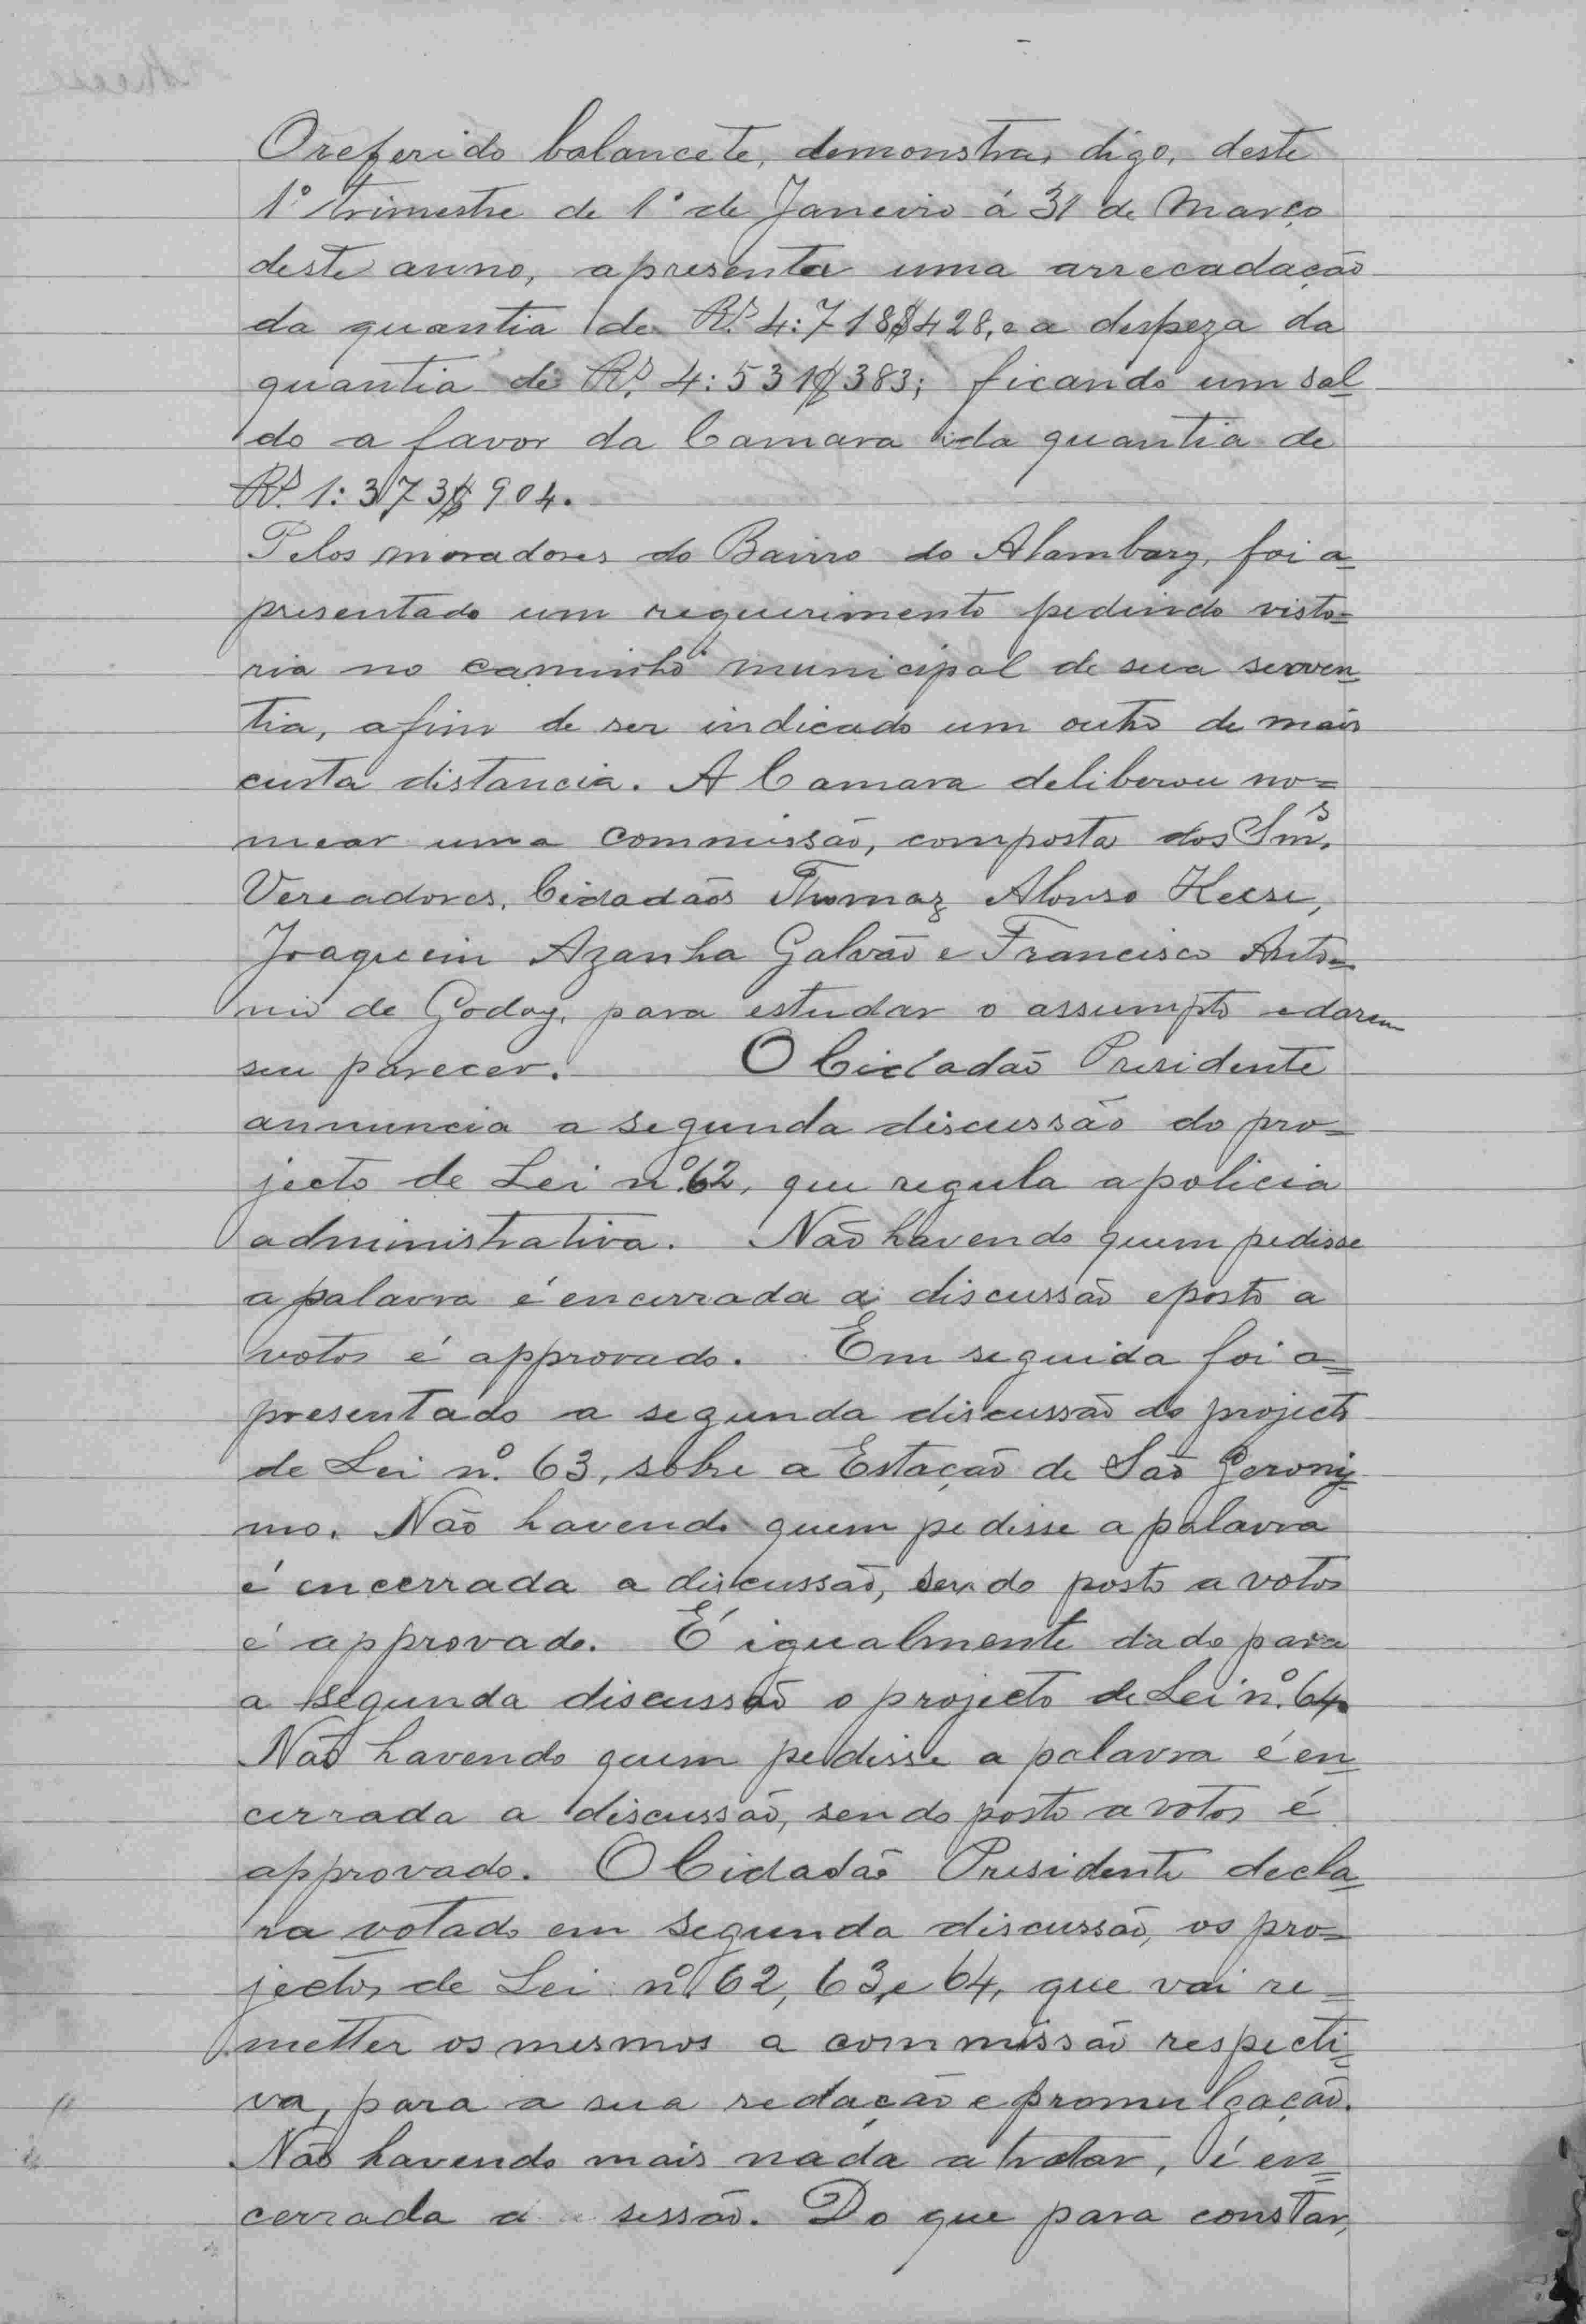 O referido balancete, demonstra, digo, deste
1º trimestre de 1º de Janeiro á 31 de Março
deste anno, apresenta uma arrecadação
da quantia de Rs. 4:718$428, e a despeza da
quantia de Rs. 4:531$383; ficando um sal-
do a favor da Camara da quantia de
Rs. 1:373$904.
Pelos moradores do Bairro do Alambary, foi a-
presentado um requerimento pedindo visto=
ria no caminho municipal de sua serven-
tia, afim de ser indicado um outro de mais
curta distancia. A Camara deliberou no=
mear uma commissão, composta dos Snrs.
Vereadores, Cidadãos Thomaz Alonso Keese,
Joaquim Azanha Galvão e Francisco Anto=
nio de Godoy, para estudar o assumpto e darem
seu parecer. O Cidadão Presidente
annuncia a segunda discussão do pro=
jecto de Lei nº 62, que regula a policia
administrativa. Não havendo quem pedisse
a palavra é encerrada a discussão e posto a
votos é approvado. Em seguida foi a=
presentado a segunda discussão do projecto
de Lei nº. 63, sobre a Estação de São Gerony-
mo. Não havendo quem pedisse a palavra
é encerrada a discussão, sendo posto a votos
é approvado. É igualmente dado para
a segunda discussão o projecto de Lei nº. 64.
Não havendo quem pedisse a palavra é en=
cerrada a discussão, sendo posto a votos é
approvado. O Cidadão Presidente decla=
ra votado em segunda discussão, os pro=
jectos de Lei nº 62, 63, e 64, que vai re=
metter os mesmos a commissão respecti=
va, para a sua redação e promulgação.
Não havendo mais nada a tratar, é en=
cerrada a sessão. Do que para constar,